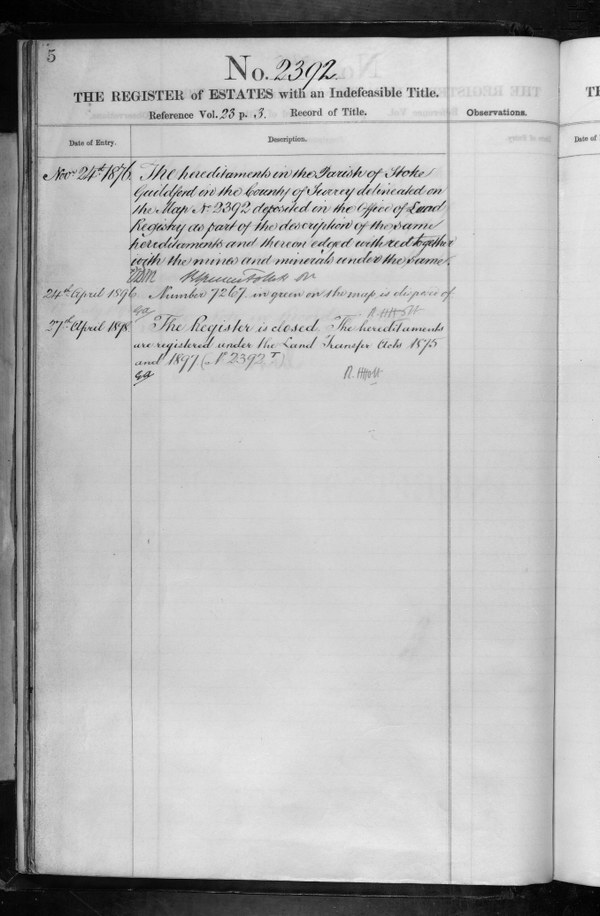 5
No. 2392.
THE REGISTER of ESTATES with an Indefeasible Title.
Reference Vol. 23 p. 3. Record of Title.
Observations.
Date of Entry.
Description.
Novr 24th 1876
The hereditaments in the Parish of Stoke
Guildford in the County of Surrey delineated on
the Map No 2392 deposited in the Office of Land
Registry as part of the description of the same
hereditaments and thereon edged with red together
with the mines and minerals under the same.
24th April 1896
Number 7267 in green on the map is disposed of
R. H. Holt
27th April 1898
The Register is closed. The hereditaments
are registered under the Land Transfer Acts 1875
and 1897 (No 2392 T)
R. H. Holt
TH
Date of